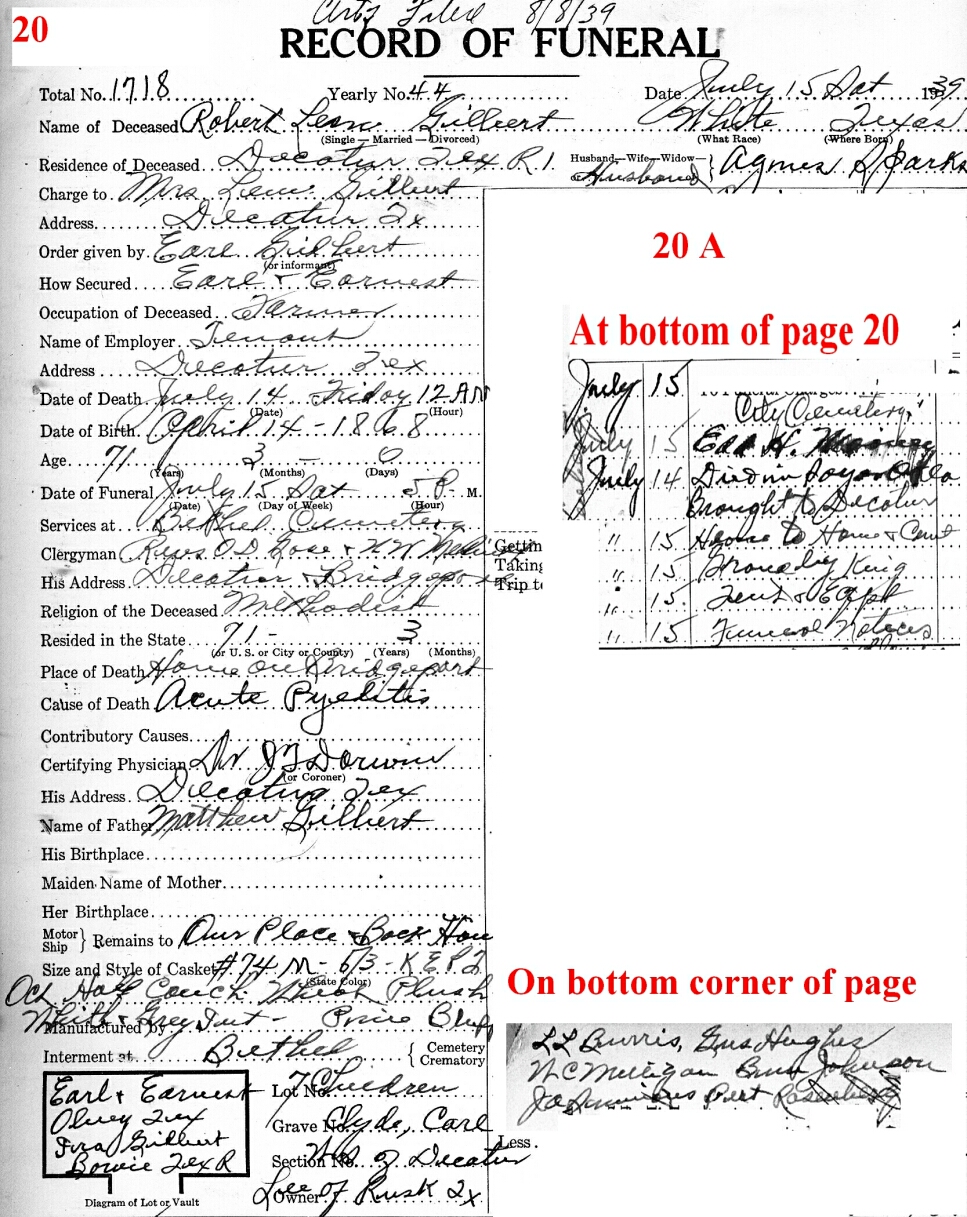 20
Filed 8/8/39
RECORD OF FUNERAL
Total No. 1718 Yearly No. 44 Date July 15 Sat 1939
Name of Deceased Robert Leon Gilbert White Texas
(Single — Married — Divorced) (What Race) (Where Born)
Residence of Deceased Decatur Tex R 1. Husband—Wife—Widow— or Husband } Agnes Sparks
Charge to Mrs Leon Gilbert
Address Decatur Tx
Order given by Earl Gilbert
(or informant)
How Secured Earl + Earnest
Occupation of Deceased Farmer
Name of Employer Tenant
Address Decatur Tex
Date of Death July 14 Friday 12 AM
(Date) (Hour)
Date of Birth April 14 - 1868
Age 71 3 0
(Years) (Months) (Days)
Date of Funeral July 15 Sat 5 P. M.
(Date) (Day of Week) (Hour)
Services at Bethel Cemetery
Clergyman Revs. O.D. Gose +
His Address Decatur + Bridgeport
Religion of the Deceased Methodist
Resided in the State 71 - 3
(or U. S. or City or County) (Years) (Months)
Place of Death Home on Bridgeport
Cause of Death Acute Pyelitis
Contributory Causes
Certifying Physician Dr J T Darwin
(or Coroner)
His Address Decatur Tex
Name of Father Matthew Gilbert
His Birthplace
Maiden Name of Mother
Her Birthplace
Motor Ship } Remains to Our Place + Back Home
Size and Style of Casket #74 M - 6/3 - K E P Z
(State Color)
Oct Half Couch Plush
Manufactured by Grey
Interment at Bethel { Cemetery Crematory
Earl + Earnest
Olney Tex
Ira Gilbert
Bowie Tex R
Diagram of Lot or Vault
Lot No. 7 Children
Grave No. Clyde, Carl
Section No. of Decatur
Owner Lee of Rusk Tx
20 A
At bottom of page 20
July 15
City Cemetery
July 15
July 14 Died in
Brought to Decatur
" 15 Home to Home + Cemt
" 15 King
" 15 Tent + Eqpt
" 15 Funeral Notices
Getting
Taking
Trip to
On bottom corner of page
L L Burris, Gus Hughes
W C Milligan Johnson
Bert
Less.